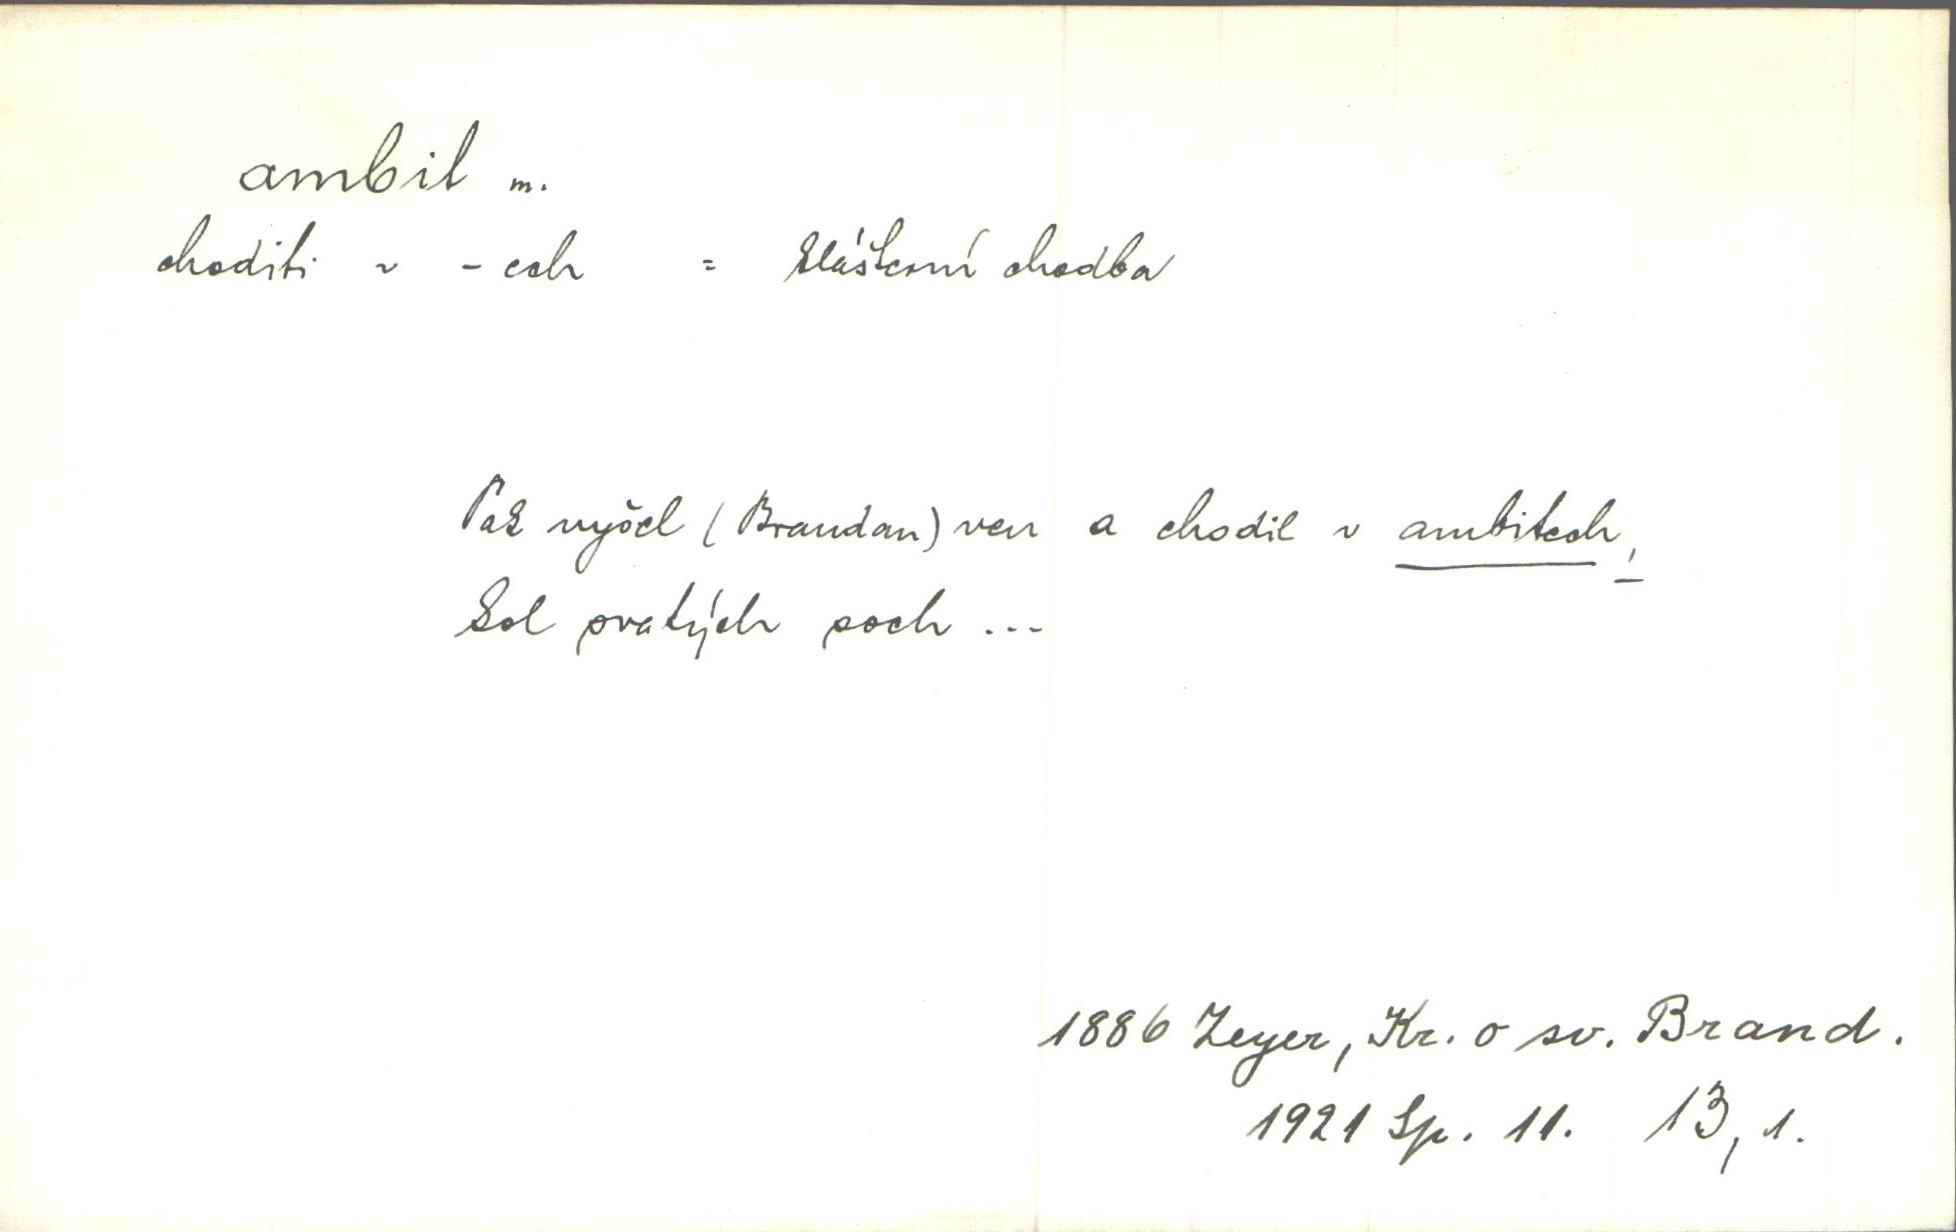 ambit m.
choditi v -ech = klášterní chodba
Pak vyšel (Brandan) ven a chodil v ambitech,
kol svatých soch ...
1886 Zeyer, Kr. o sv. Brand.
1921 Sp. 11. 13, 1.